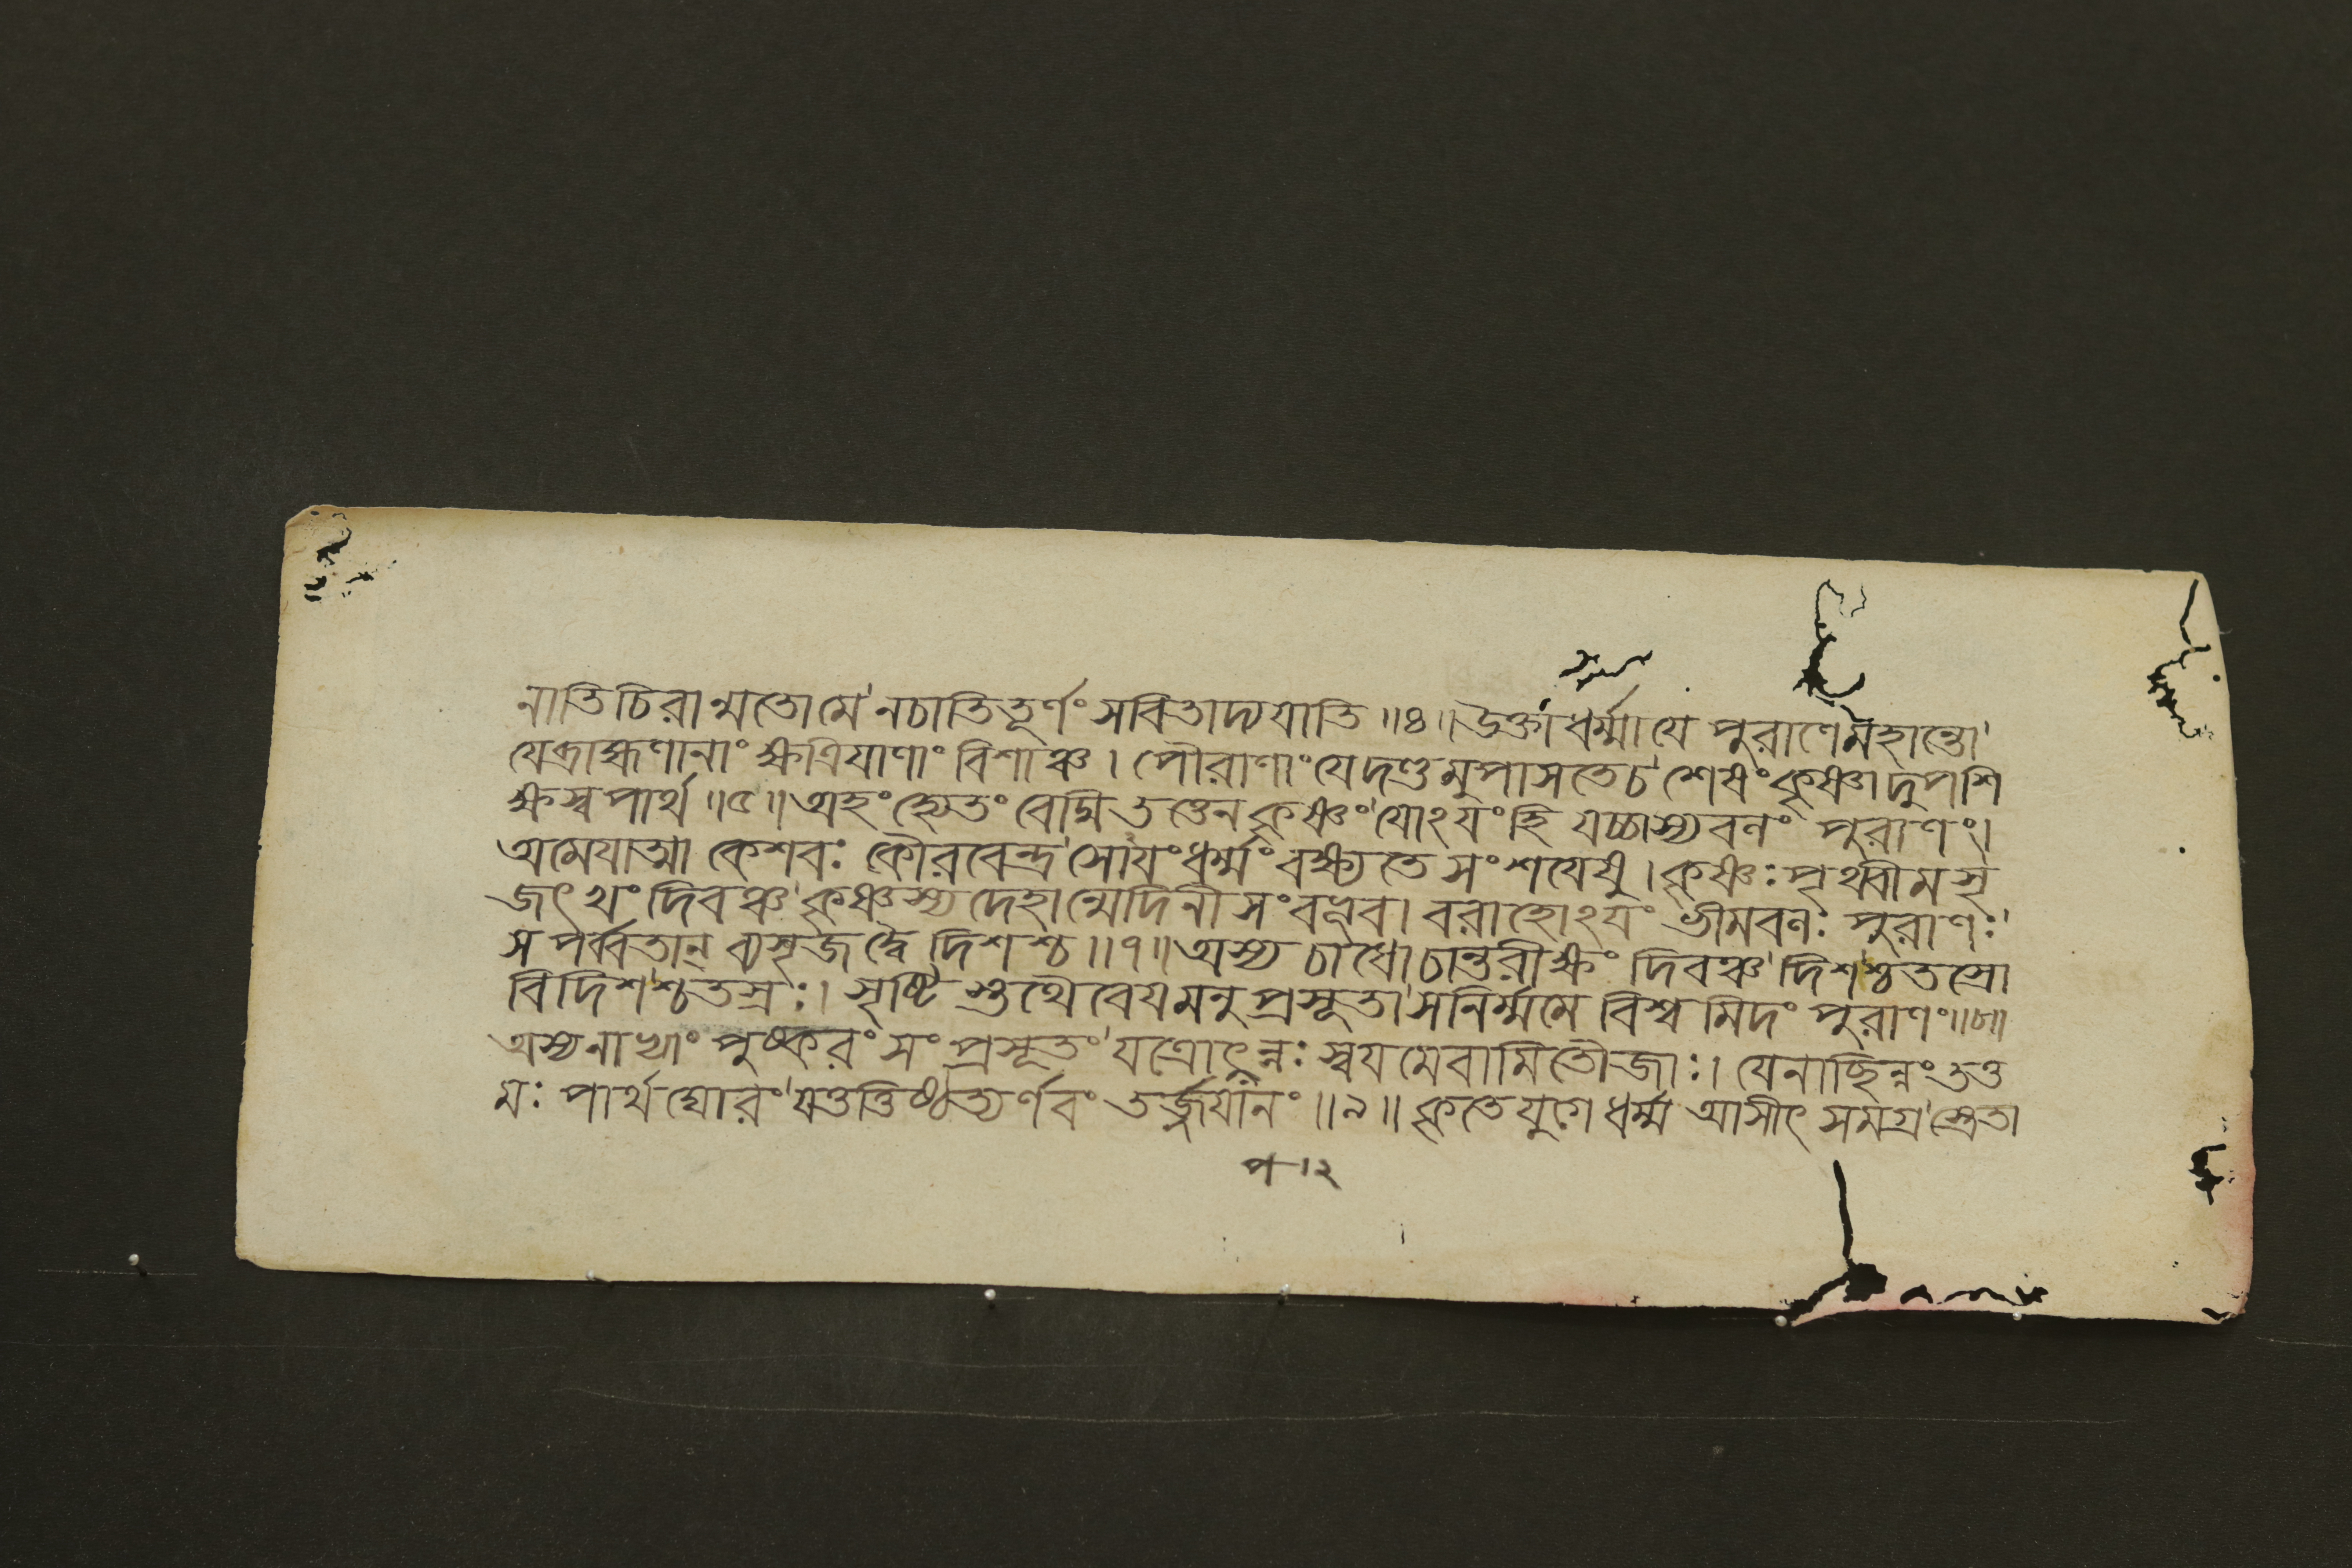 নাতিচিরান্মতোমে নচাতিতূর্ণং সবিতাদ্যযাতি ॥৪॥ উক্তাধর্ম্মাযে পুরাণেমহান্তো
যেব্রাহ্মণানাং ক্ষত্রিযাণাং বিশাঞ্চ। পৌরাণাং যেদণ্ডমুপাসতেচ শেষং কৃষ্ণাদুপশি
ক্ষস্ব পার্থ ॥৫॥ অহং হ্যেতং বেদ্মি তত্ত্বেন কৃষ্ণং যোঽযং হি যচ্চাস্যবলং পুরাণং।
অমেযাত্মা কেশবঃ কৌরবেন্দ্র সোযংধর্ম্মং বক্ষ্যতে সংশযেষু। কৃষ্ণঃপৃথ্বীমসৃ
জৎ খং দিবঞ্চ কৃষ্ণস্য দেহান্মেদিনী সংবভূব। বরাহোঽযং ভীমবলঃ পুরাণঃ
স পর্ব্বতান্ ব্যসৃজদ্বৈ দিশশ্চ ॥৭॥ অস্য চাধো চান্তরীক্ষং দিবঞ্চ দিশশ্চতস্রো
বিদিশশ্চতস্রঃ। সৃষ্টিস্তথৈবেযমনুপ্রসূতা সনির্ম্মমে বিশ্বমিদং পুরাণং॥৮॥
অস্যনাভ্যাং পুষ্করং সংপ্রসূতং যত্রোৎপন্নঃ স্বযমেবামিতৌজাঃ। যেনাচ্ছিন্নং তত্ত
মঃ পার্থ ঘোরং যত্তত্তিষ্ঠত্যর্ণবং তর্জ্জযানং ॥৯॥ কৃতে যুগে ধর্ম্ম আসীৎ সমগ্র স্ত্রেতা
প ১২